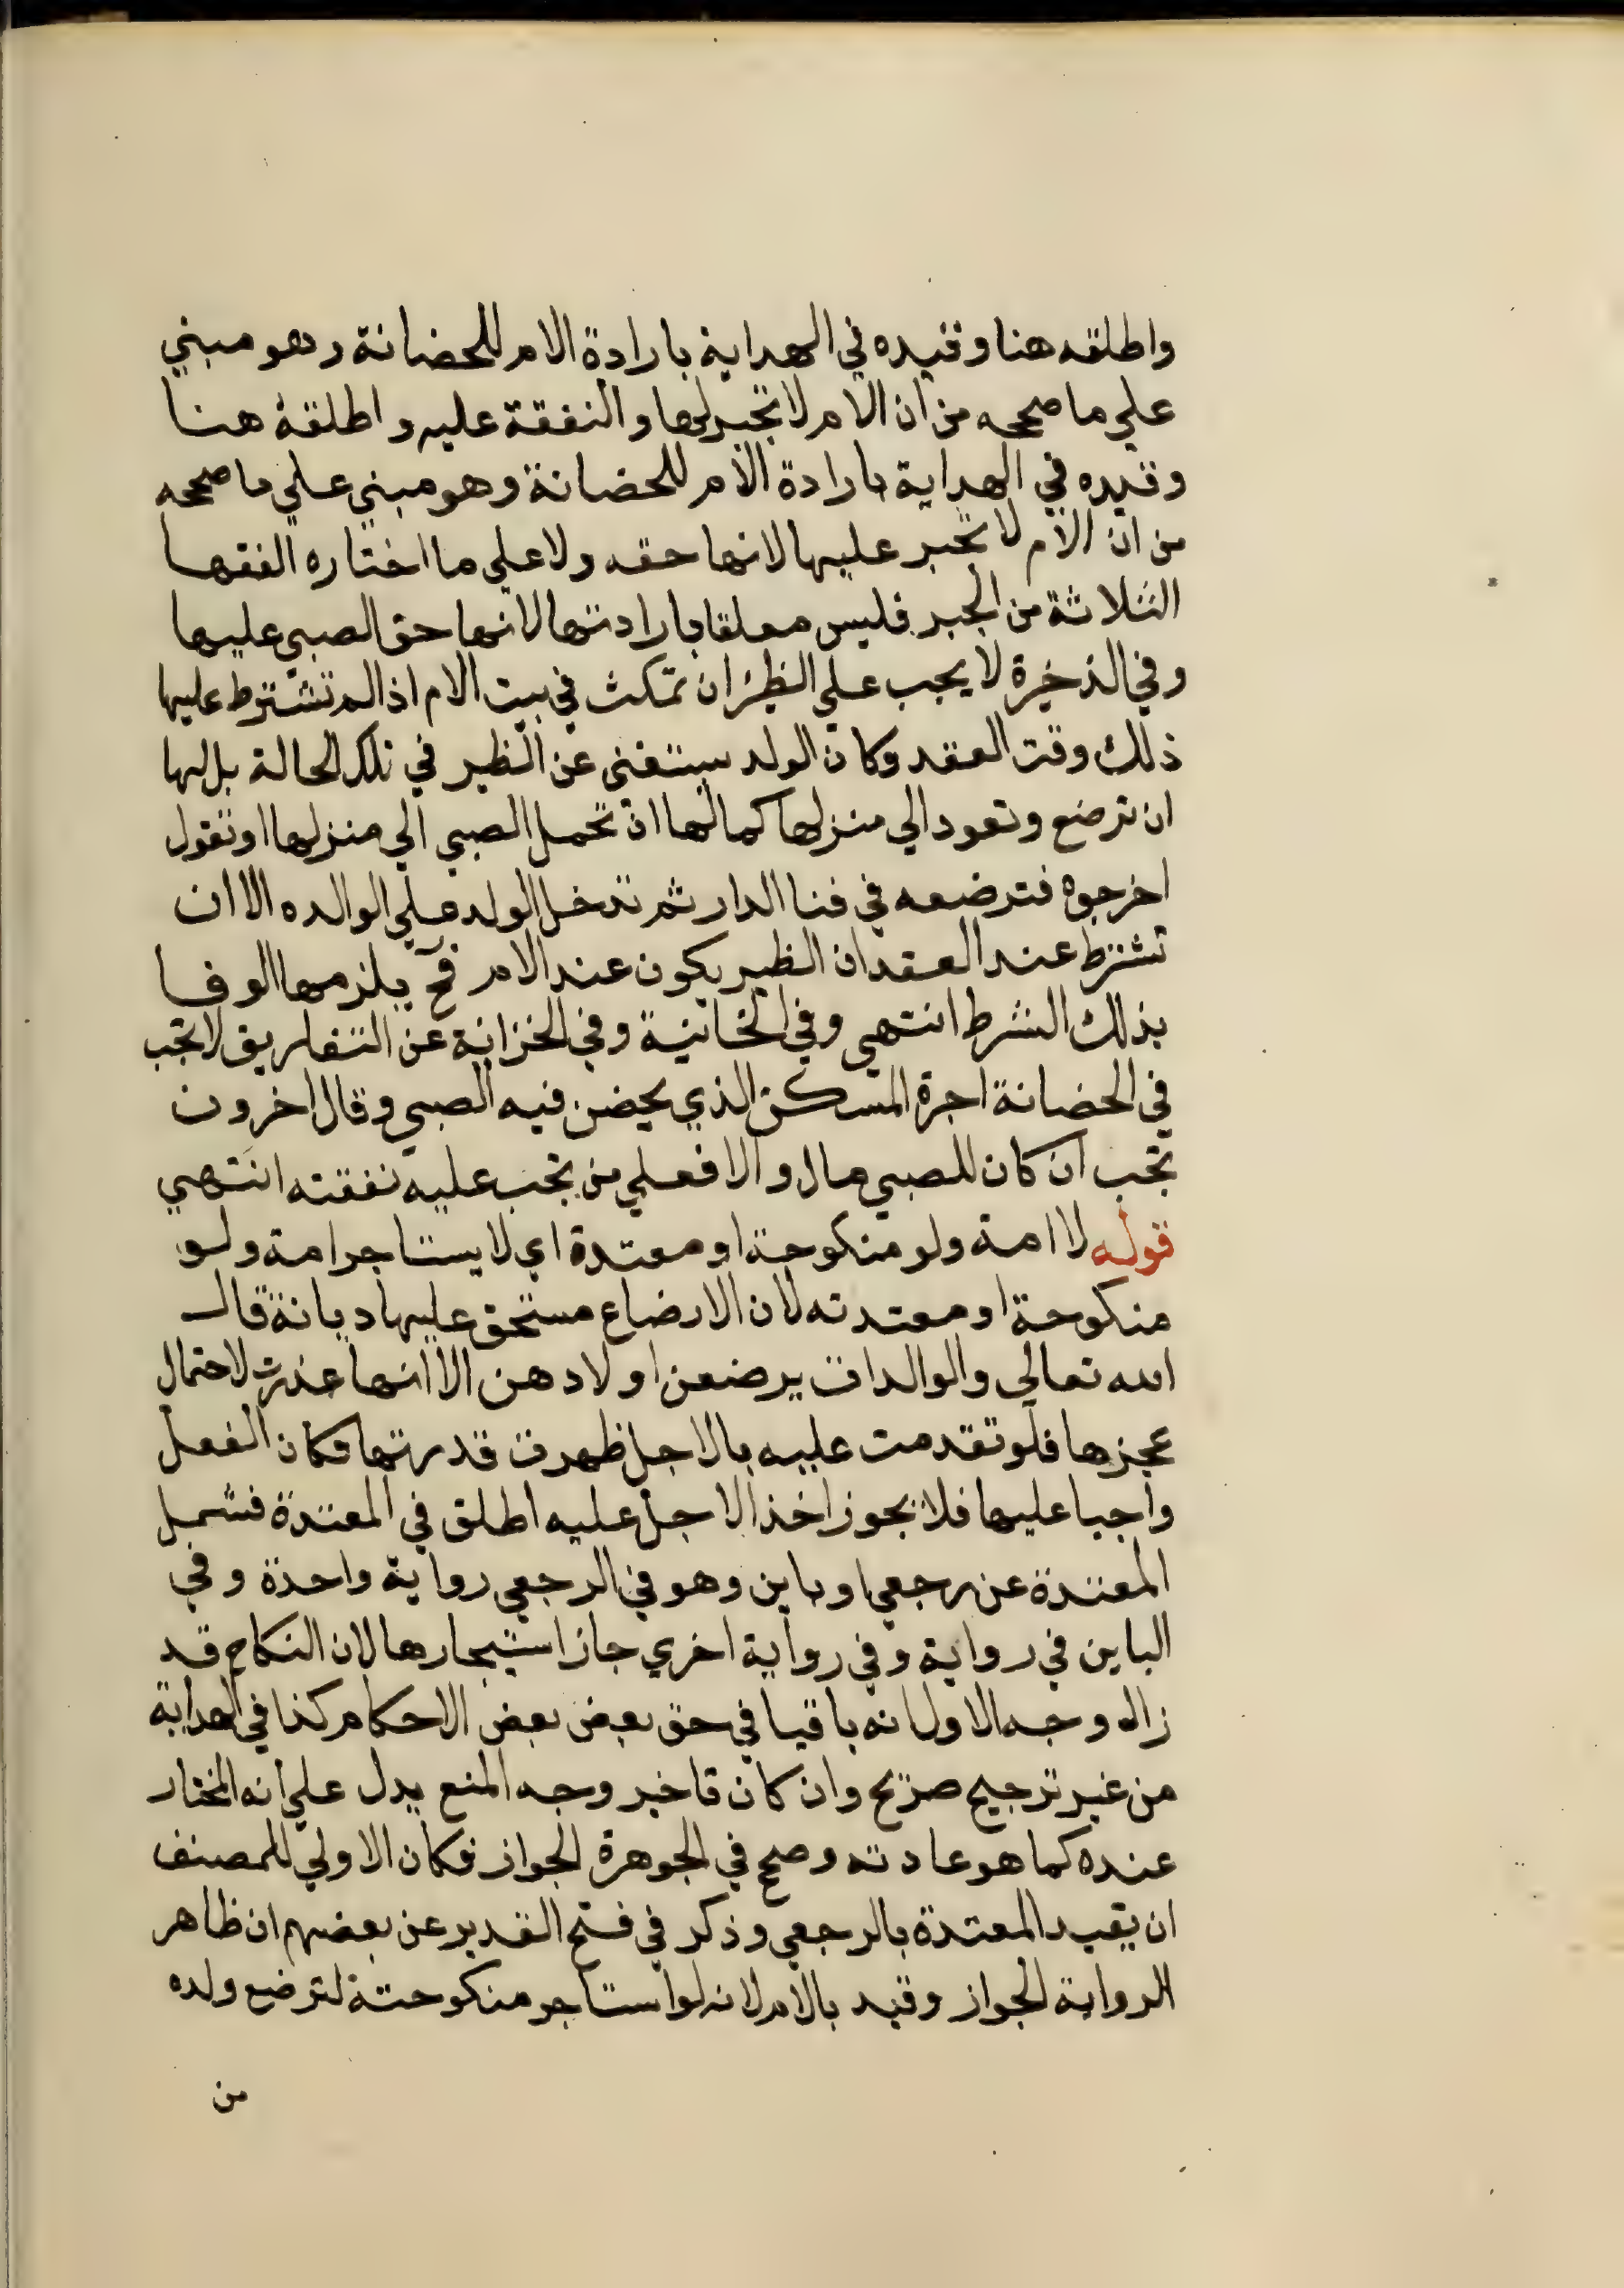 واطلقه هنا وقيده في الهداية بارادة الام للحضانة وهو مبني
علي ما صححه من ان الام لا تجبر لها والنفقة عليه واطلقة هنا
وقيده في الهداية بارادة الام للحضانة وهو مبني علي ما صححه
من ان الام لا تجبر عليها لانها حقه ولا علي ما اختاره الفقها
الثلاثة من الجبر فليس معلقا بارادتها لانها حق الصبي عليها
وفي الذخيرة لا يجب علي الظيران تمكث في بيت الام اذا لم تشترط عليها
ذلك وقت العقد وكان الولد يستغني عن الظير في تلك الحالة بل لها
ان ترضع وتعود الي منزلها كما لها ان تحمل الصبي الي منزلها او تقول
اخرجوه فترضعه في فنا الدار ثم تدخل الولد علي الوالده الا ان
تشترط عند العقد ان الظير يكون عند الام فح يلزمها الوفا
بذلك الشرط انتهي وفي الخانية وفي الخزانة عن التفاريق لا تجب
في الحضانة اجرة المسكن الذي يحضن فيه الصبي وقال اخرون
تجب ان كان للصبي مال والا فعلي من تجب عليه نفقته انتهي
قوله لا امة ولو منكوحة او معتدة اي لا يستاجر امة ولو
منكوحة او معتدته لان الارضاع مستحق عليها ديانة قال
الله تعالي والوالدات يرضعن اولادهن الا انها عذرت لاحتمال
عجزها فلو تقدمت عليه بالاجل ظهرت قدرتها فكان الفعل
واجبا عليها فلا يجوز اخذ الاجل عليه اطلق في المعتدة فشمل
المعتدة عن رجعي او باين وهو في الرجعي رواية واحدة وفي
الباين في رواية وفي رواية اخري جاز استيجارها لان النكاح قد
زال وجه الاول انه باقيا في حق بعض بعض الاحكام كذا في الهداية
من غير ترجيح صريح وان كان تاخير وجه المنع يدل علي انه المختار
عنده كما هو عادته وصحح في الجوهرة الجواز فكان الاولي للمصنف
ان يقيد المعتدة بالرجعي وذكر في فتح القدير عن بعضهم ان ظاهر
الرواية الجواز وقيد بالام لانه لو استاجر منكوحتة لترضع ولده
من